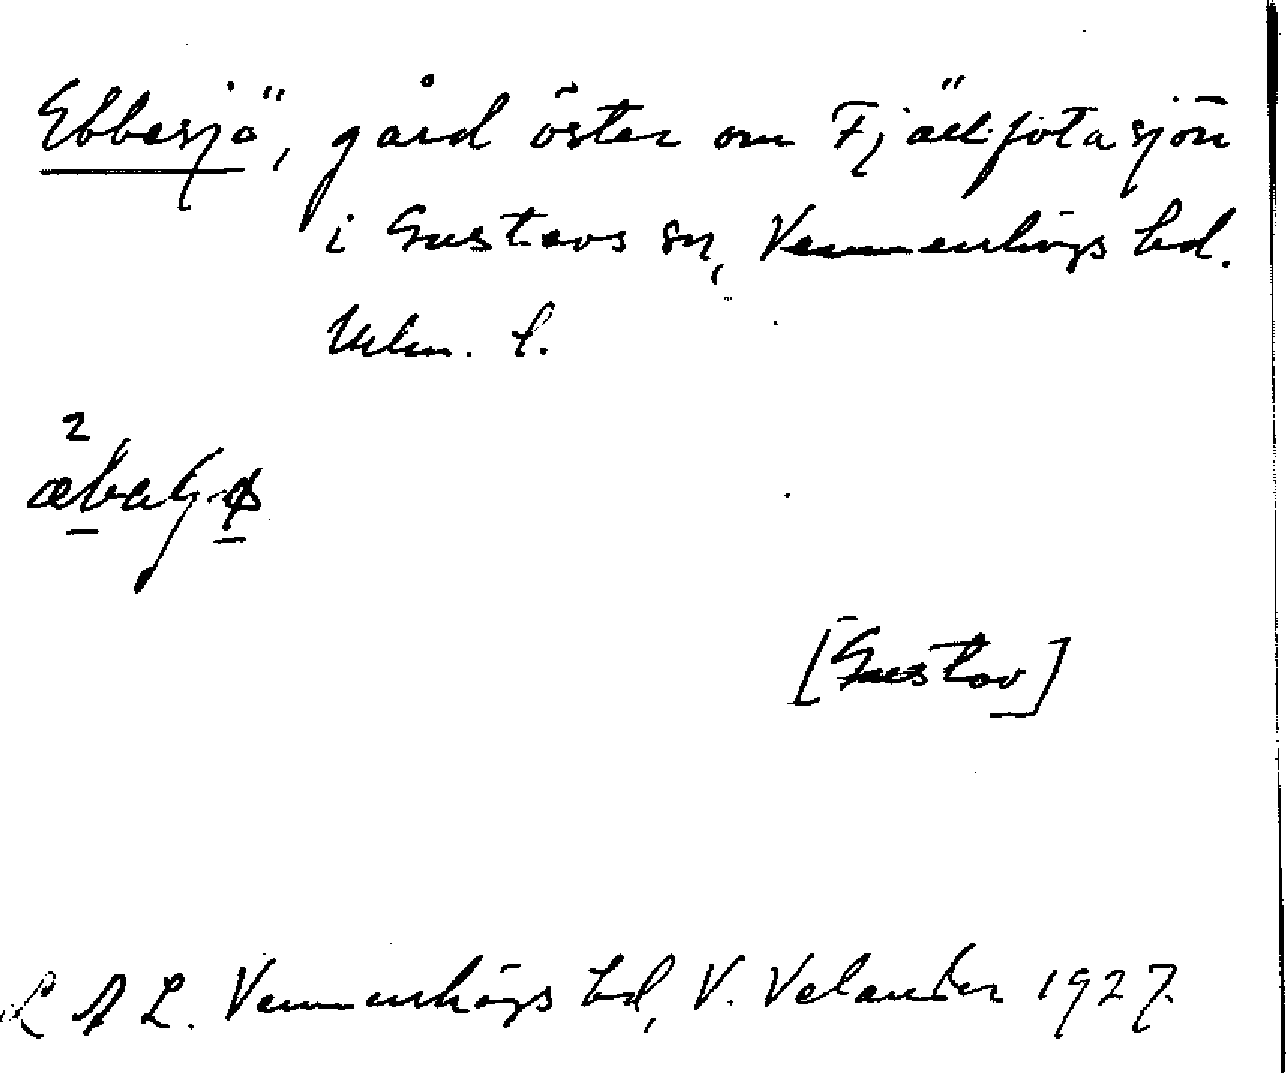 Ebbesjö, gård öster om Fjällfotasjön
i Gustavs sn, Vemmenhögs hd.
Mlm. l.
2
[Gustav]
L A L. Vemmenhögs hd, V. Velander 1927.